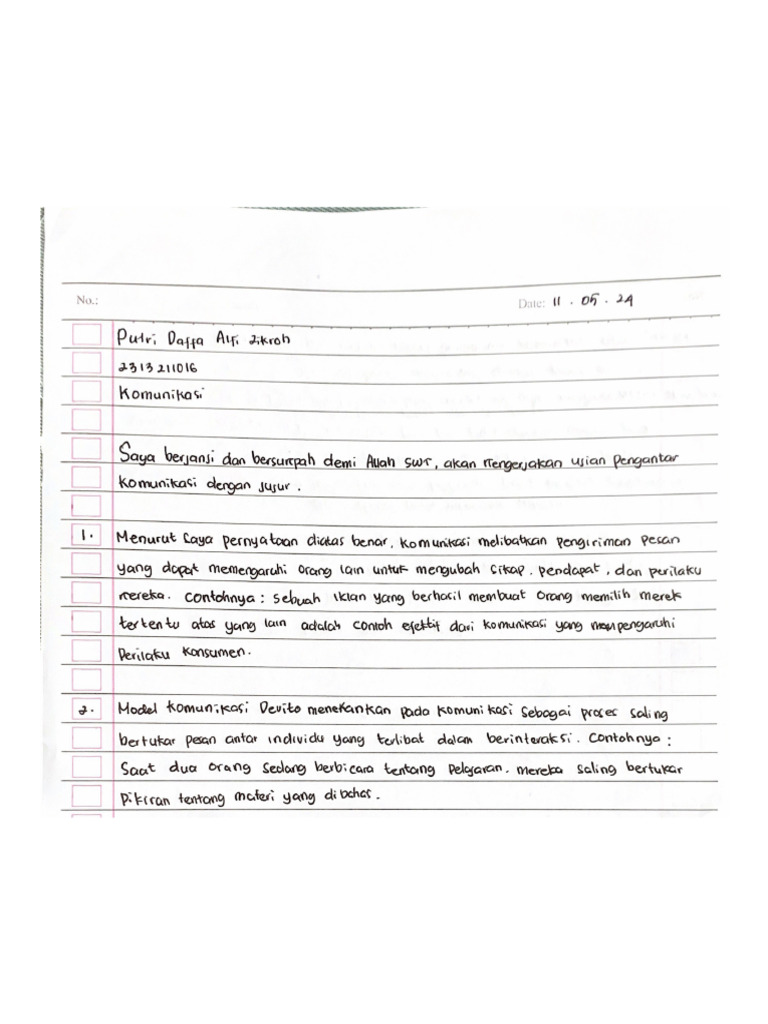 No.:
Date: 11 . 05 . 24
Putri Daffa Alfi Zikroh
2313211016
Komunikasi
Saya berjanji dan bersumpah demi Allah SWT, akan mengerjakan usian Pengantar
komunikasi dengan jujur.
1. Menurut Saya pernyataan diatas benar, komunikasi melibatkan pengiriman pesan
yang dapat memengaruhi orang lain untuk mengubah sikap, pendapat, dan perilaku
mereka. Contohnya : sebuah iklan yang berhasil membuat orang memilih merek
tertentu atas yang lain adalah contoh efektif dari komunikasi yang mempengaruhi
Perilaku konsumen.
2. Model komunikasi Devito menekankan pada komunikasi sebagai proses saling
bertukar pesan antar individu yang terlibat dalam berinteraksi. Contohnya :
Saat dua orang sedang berbicara tentang pelajaran, mereka saling bertukar
Pikiran tentang materi yang dibahas.